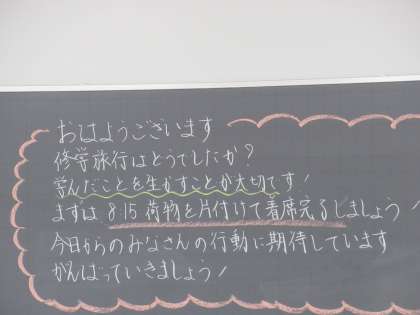 おはようございます
修学旅行はどうでしたか?
学んだことを生かすことが大切です!
まずは 8:15 荷物を片付けて着席完了しましょう!
今日からのみなさんの行動に期待しています
がんばっていきましょう!